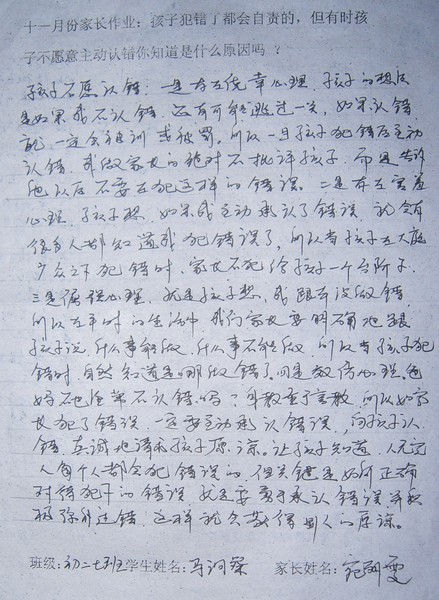 十一月份家长作业：孩子犯错了都会自责的，但有时孩
子不愿意主动认错你知道是什么原因吗？
孩子不愿认错：一是存在侥幸心理，孩子的想法
是如果我不认错，还有可能逃过一关，如果认错，
就一定会被训或被罚。所以一旦孩子犯错后主动
认错，我做家长的绝对不批评孩子，而是告诉
他以后不要再犯这样的错误。二是存在害羞
心理，孩子想，如果我主动承认了错误，就会有
很多人都知道我犯错误了，所以当孩子在大庭
广众之下犯错时，家长不妨给孩子一个台阶子。
三是倔强心理，就是孩子想，我跟本没做错，
所以在平时的生活中，我们家长要明确地跟
孩子说，什么事能做，什么事不能做，所以当孩子犯
错时，自然知道是哪做错了。四是效仿心理，爸
妈不也经常不认错吗？身教重于言教，所以如家
长犯了错误，一定要主动承认错误，向孩子认
错，真诚地请求孩子原谅。让孩子知道，人无完
人，每个人都会犯错误的，但关键是如何正确
对待犯下的错误，就是要勇于承认错误，并积
极弥补过错，这样就会获得别人的原谅。
班级：初二七班学生姓名：马 家长姓名：